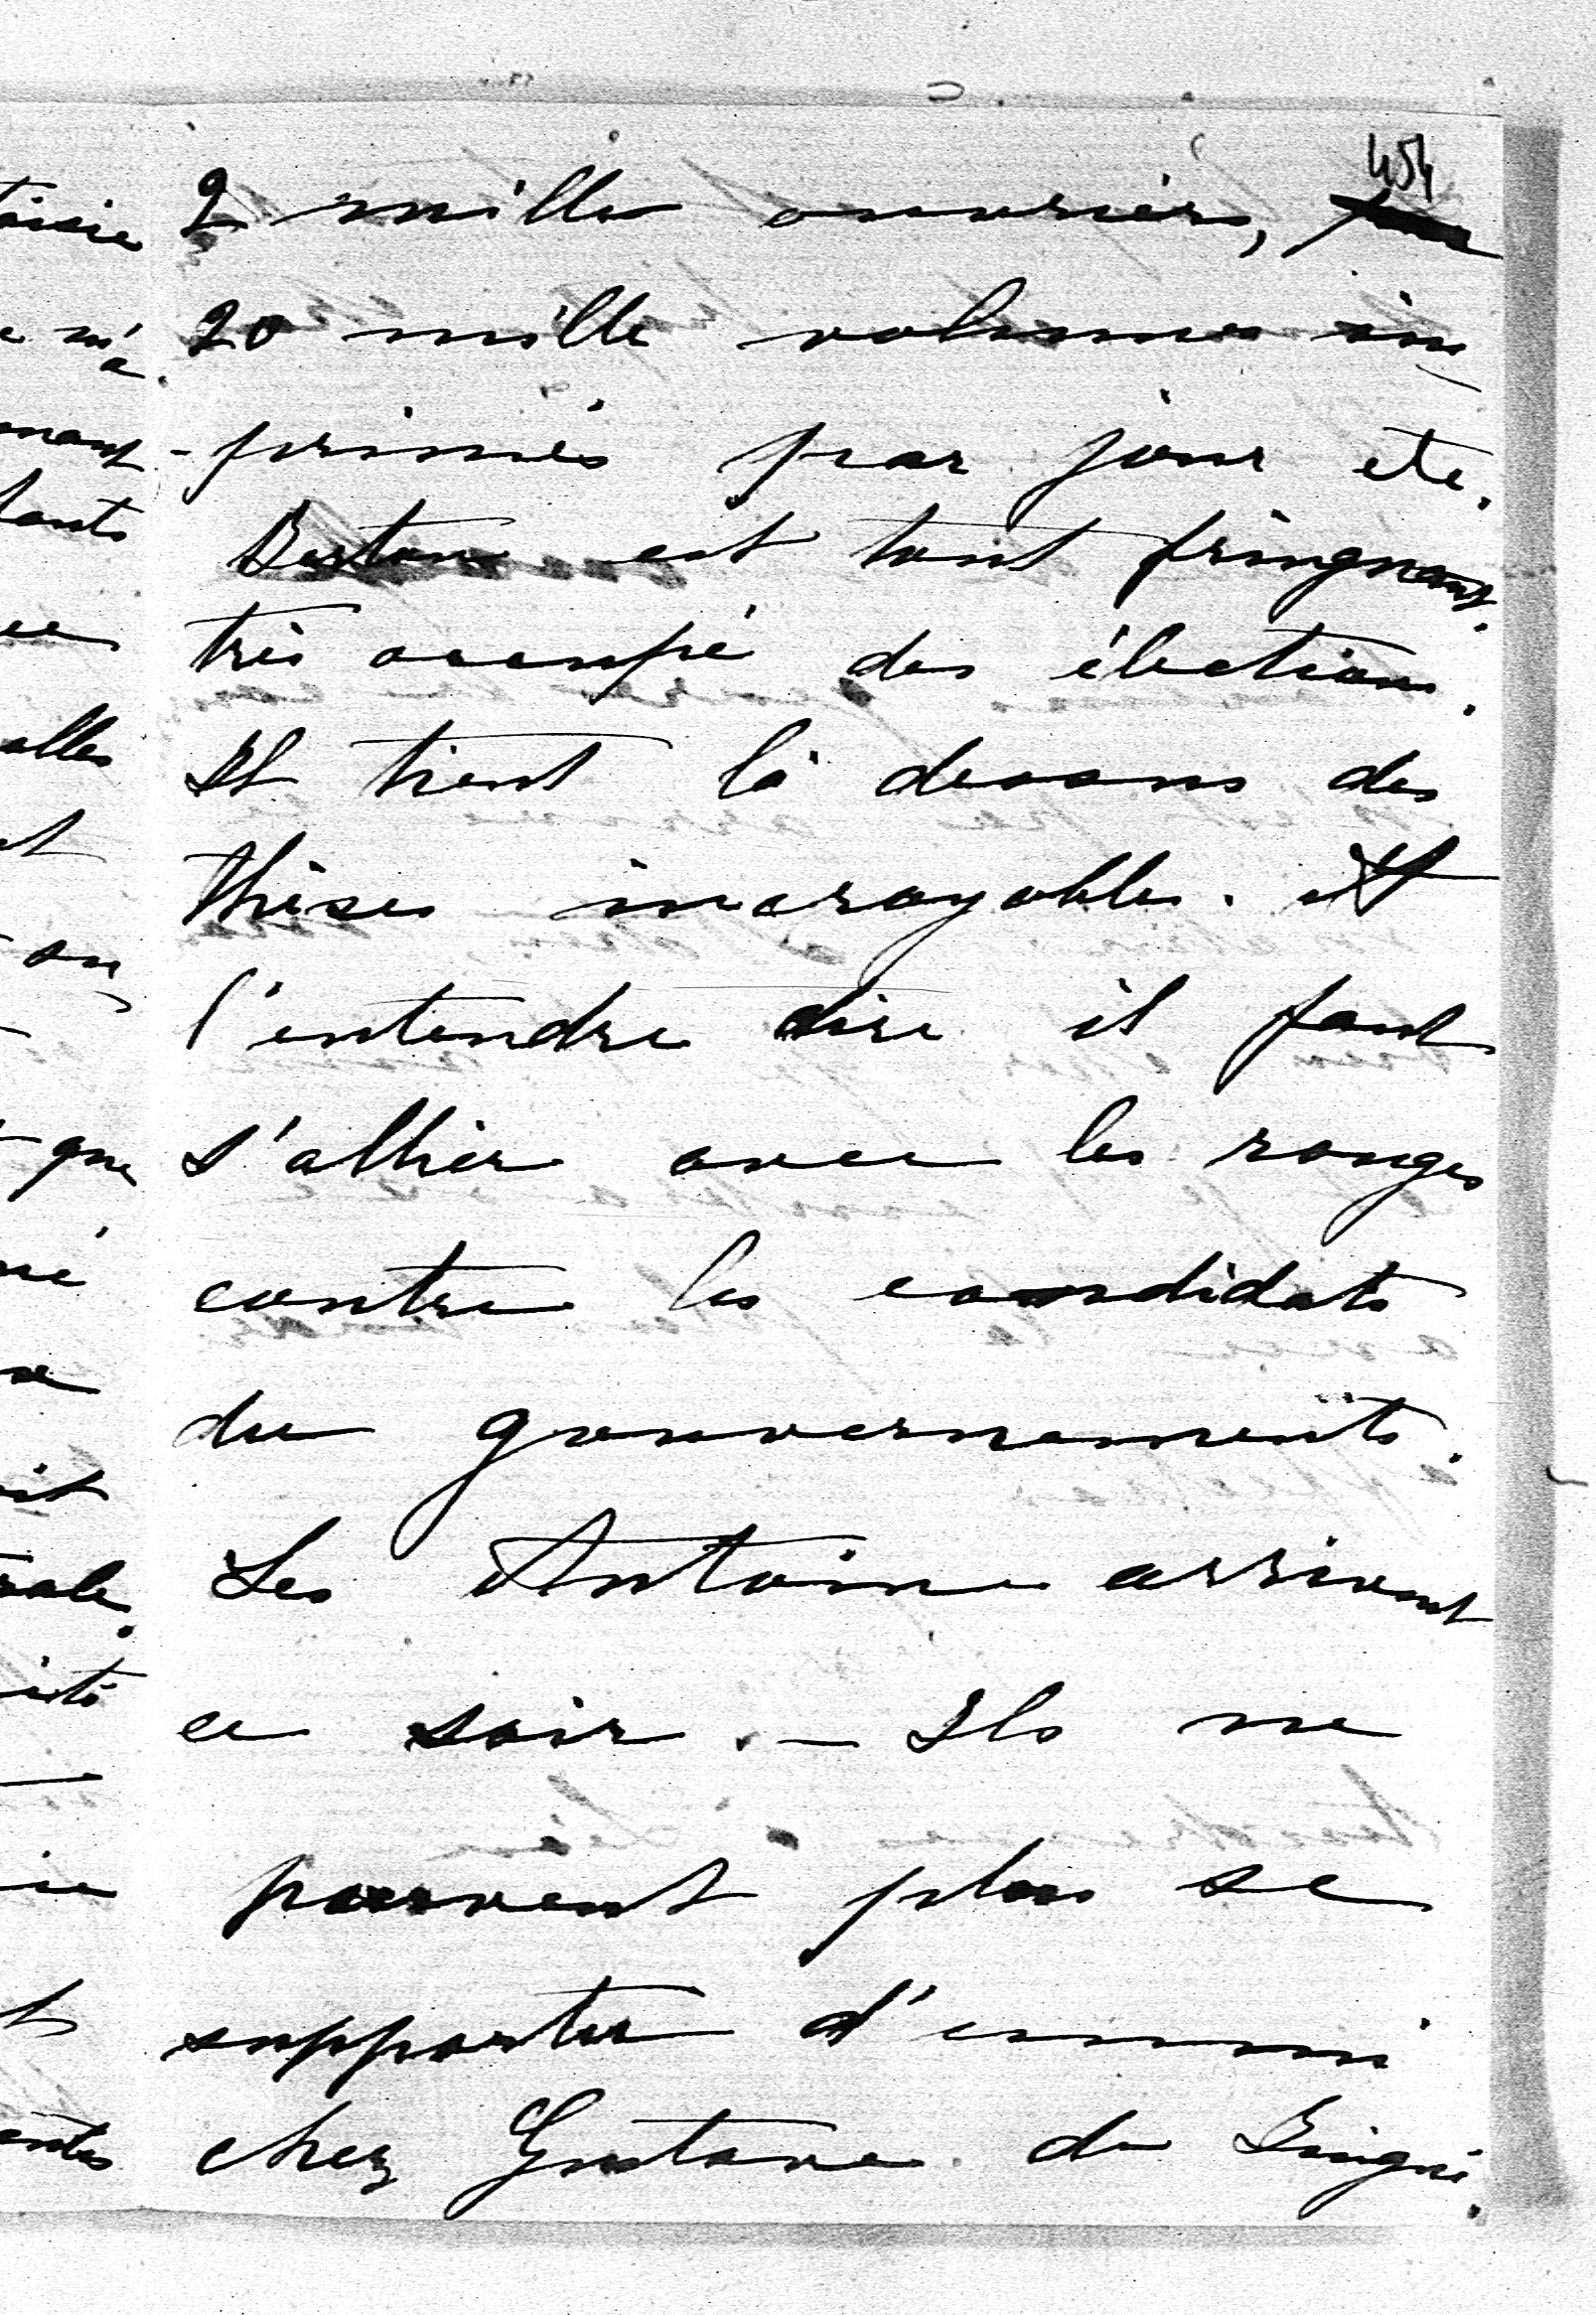 454
2 mille ouvriers,
20 mille volumes im
-primés par jour etc.
est tout fringuant.
très occupé des élections.
Il tient là dessus des
thèses incroyables. A
l'entendre dire il faut
s'allier avec les rouges
contre les candidats
du gouvernements.
Les Antoine arrivent
ce soir. - Ils ne
peuvent plus se
supporter d'ennui
chez Gustave de